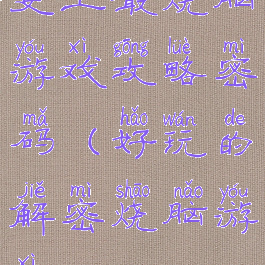 最烧脑
yóu xì gōng lüè mì
游戏攻略密
mǎ hǎo wán de
码（好玩的
jiě mì shāo nǎo yóu
解密烧脑游
xì